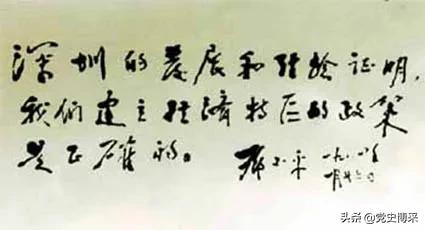 深圳的发展和经验证明，
我们建立经济特区的政策
是正确的。 邓小平 一九八四年
一月廿六日
头条 @党史博采